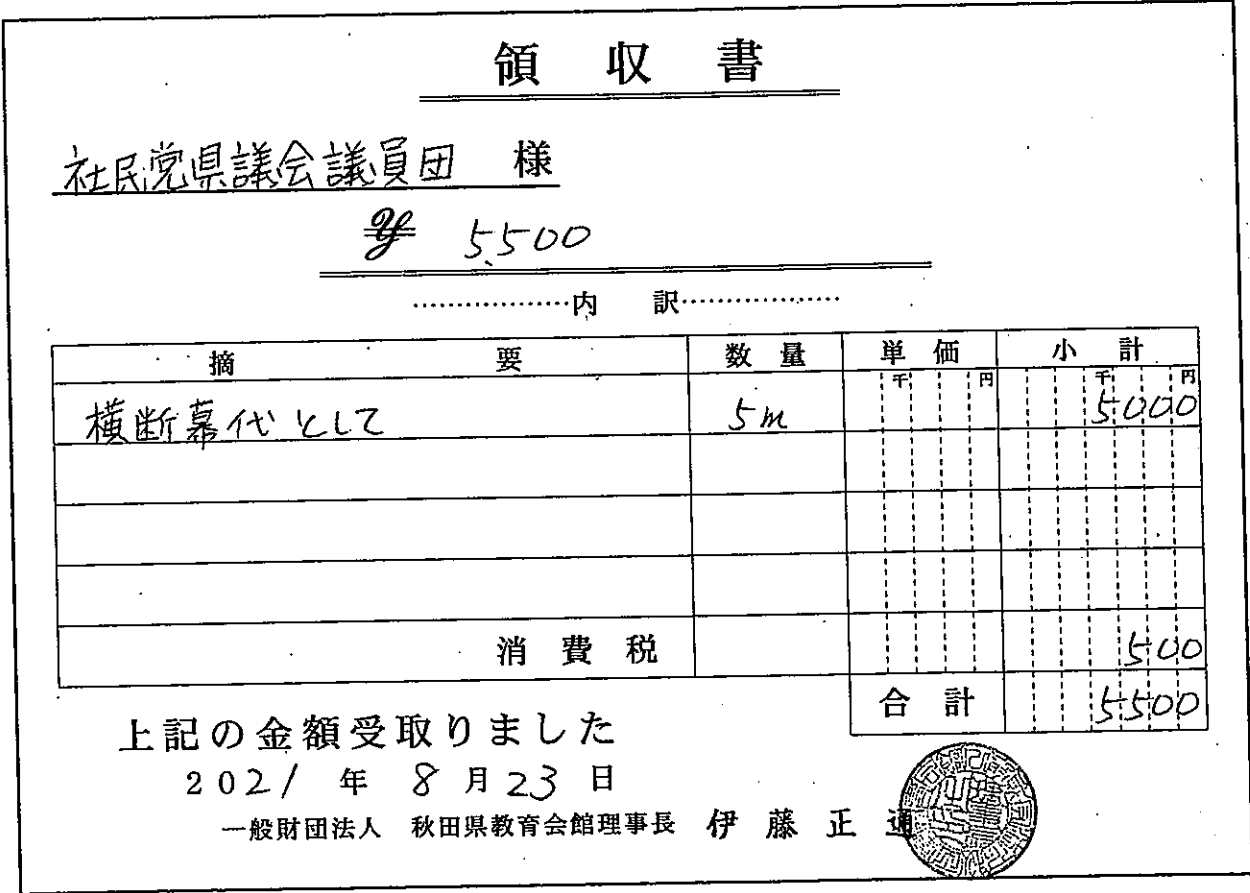 領収書
社民党県議会議員団 様
¥ 5,500
………………内 訳………………
摘 要 数量 単価 小計
千 円 千 円
横断幕代として 5m 5000
消費税 500
合計 5500
上記の金額受取りました
2021年 8月23日
一般財団法人 秋田県教育会館理事長 伊藤正通